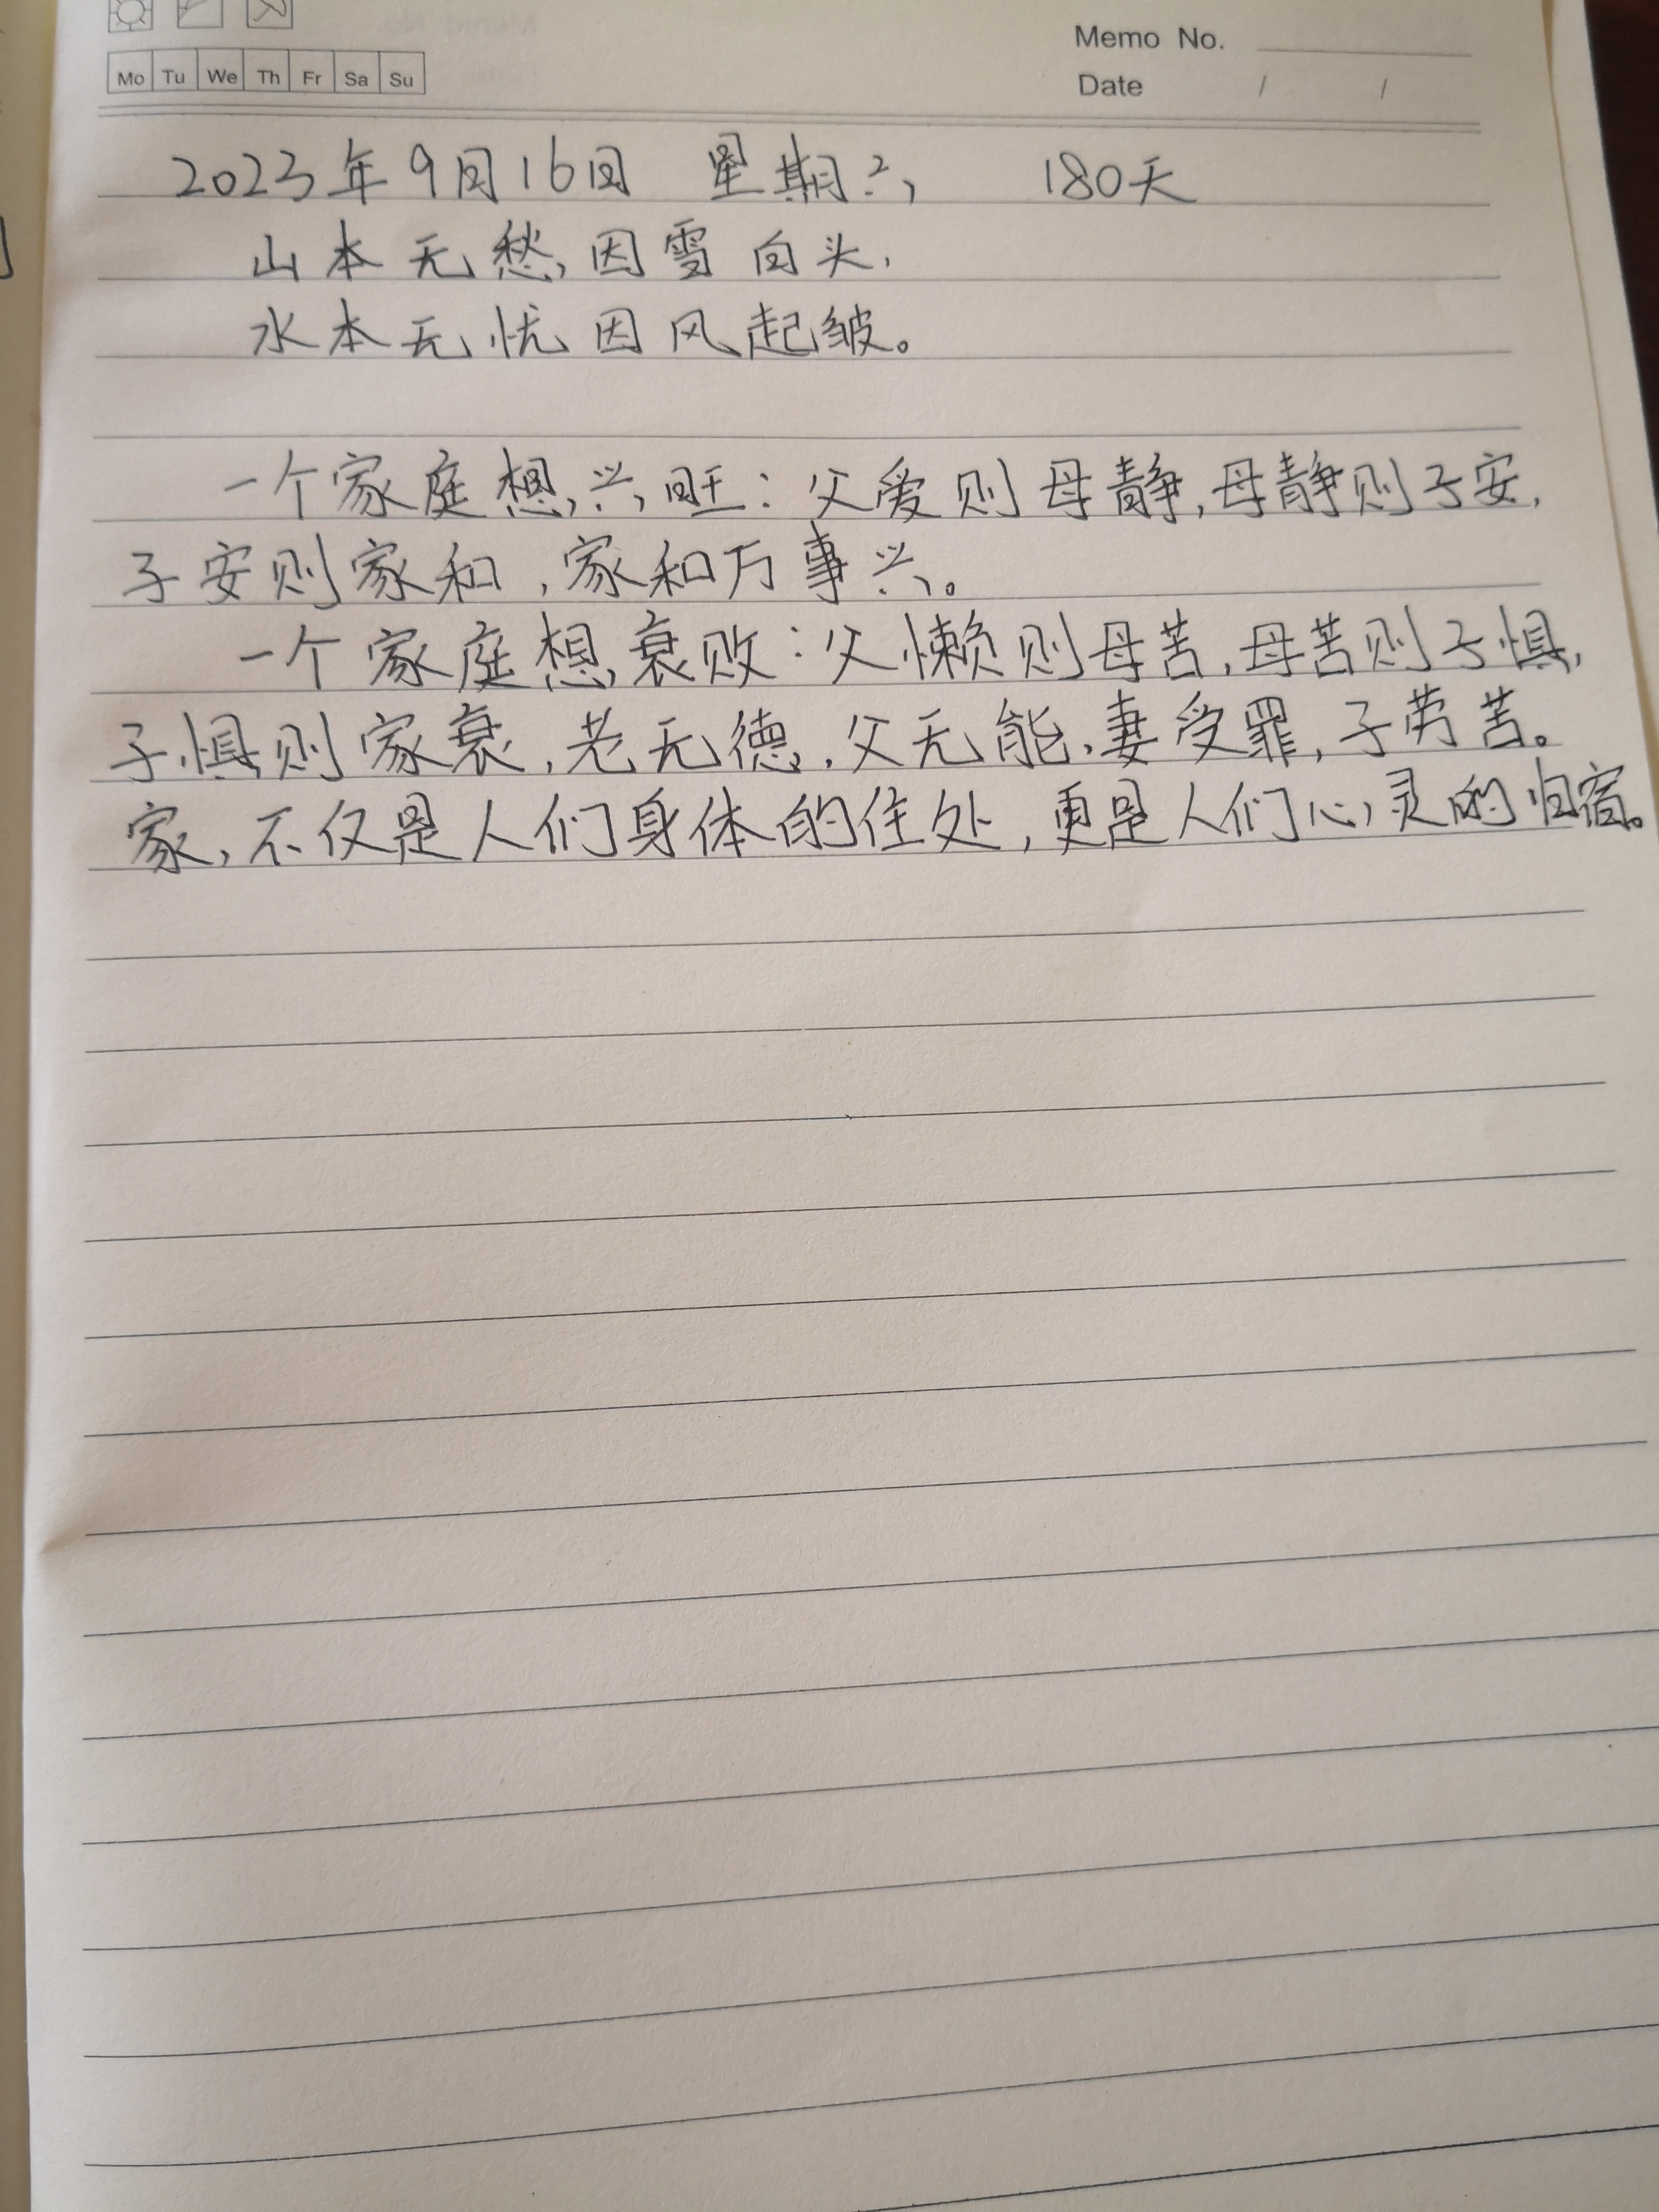 Memo No.
Mo Tu We Th Fr Sa Su
Date / /
2023年9月16日 星期六 180天
山本无愁,因雪白头,
水本无忧因风起皱。
一个家庭想兴旺:父爱则母静,母静则子安,
子安则家和,家和万事兴。
一个家庭想衰败:父懒则母苦,母苦则子惧,
子惧则家衰,老无德,父无能,妻受罪,子劳苦。
家,不仅是人们身体的住处,更是人们心灵的归宿。